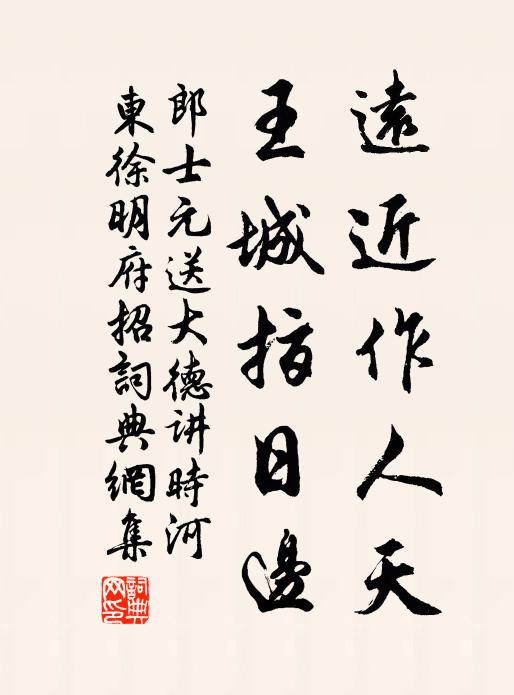 遠近作人天
王城指日邊
郎士元送大德讲時河
東徐明府招詞典網集
詞典
网印